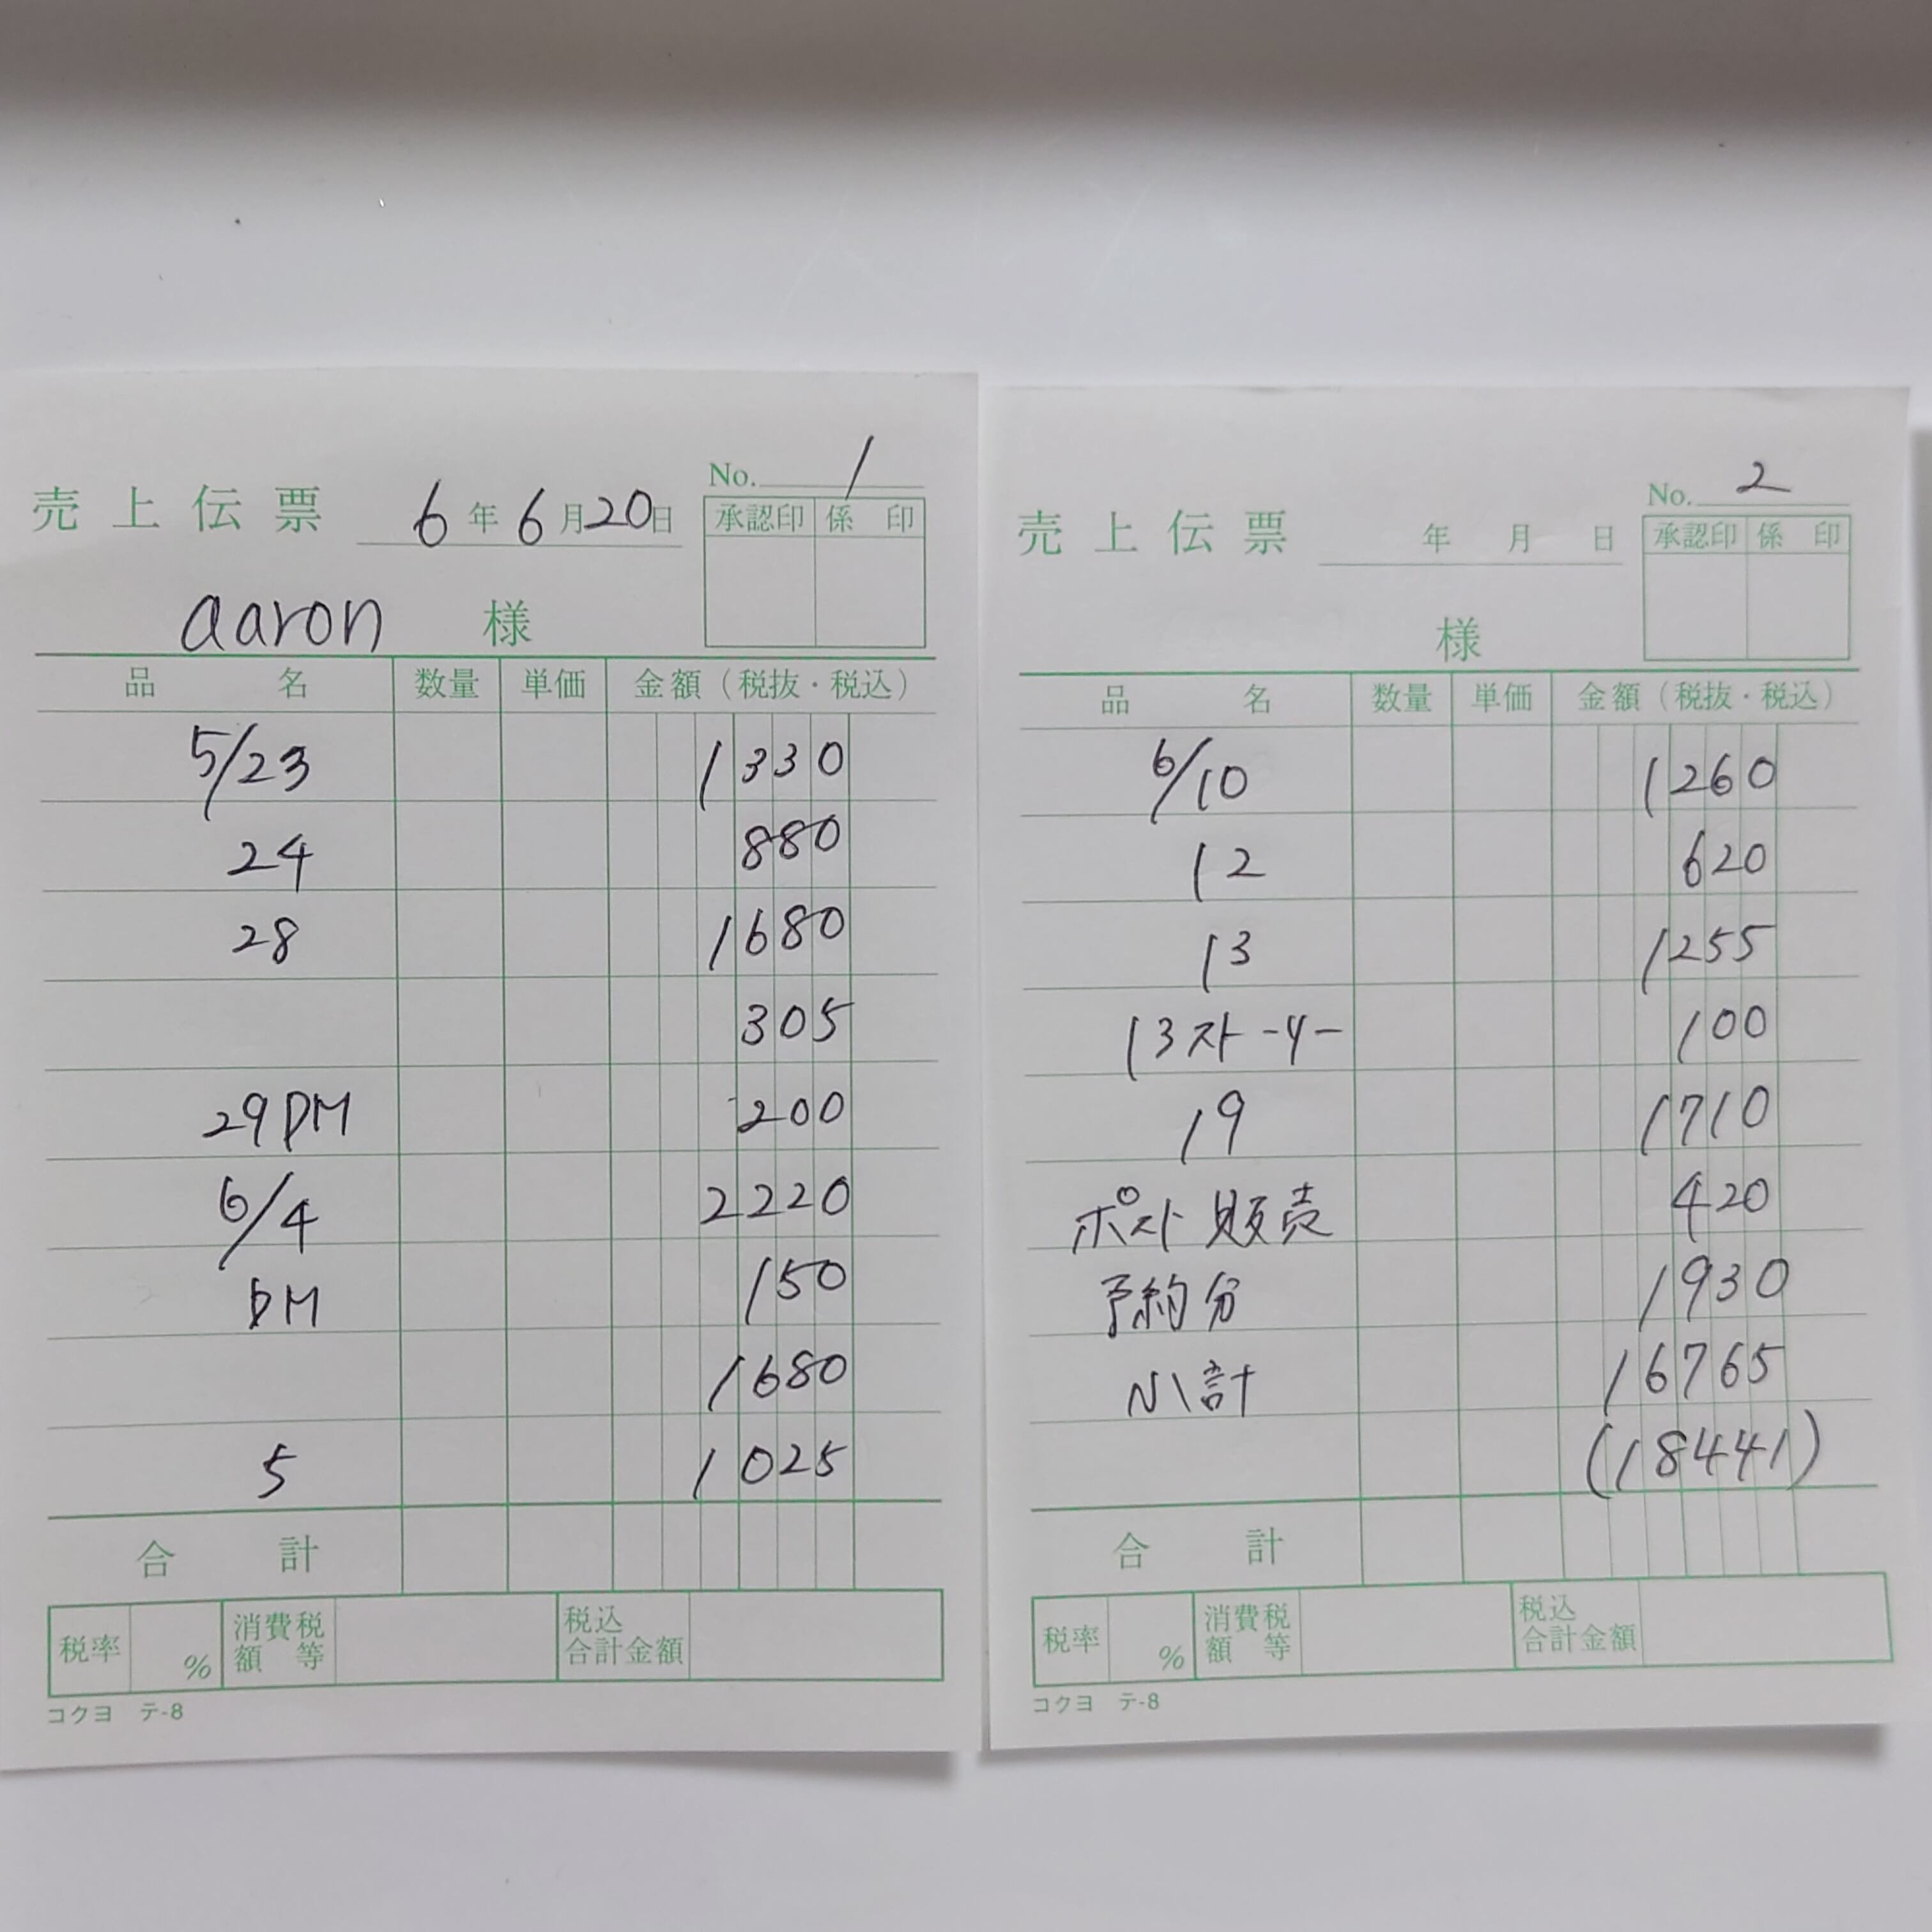 売上伝票 6年6月20日 No. 1
承認印 係印
aaron 様
品名 数量 単価 金額（税抜・税込）
5/23 1330
24 880
28 1680
305
29DM 200
6/4 2220
DM 150
1680
5 1025
合計
税率 % 消費税額等 税込合計金額
コクヨ テ-8
売上伝票 年 月 日 No. 2
承認印 係印
様
品名 数量 単価 金額（税抜・税込）
6/10 1260
12 620
13 1255
13ストーリー 100
19 1710
ポスト販売 420
予約分 1930
小計 16765
(18441)
合計
税率 % 消費税額等 税込合計金額
コクヨ テ-8